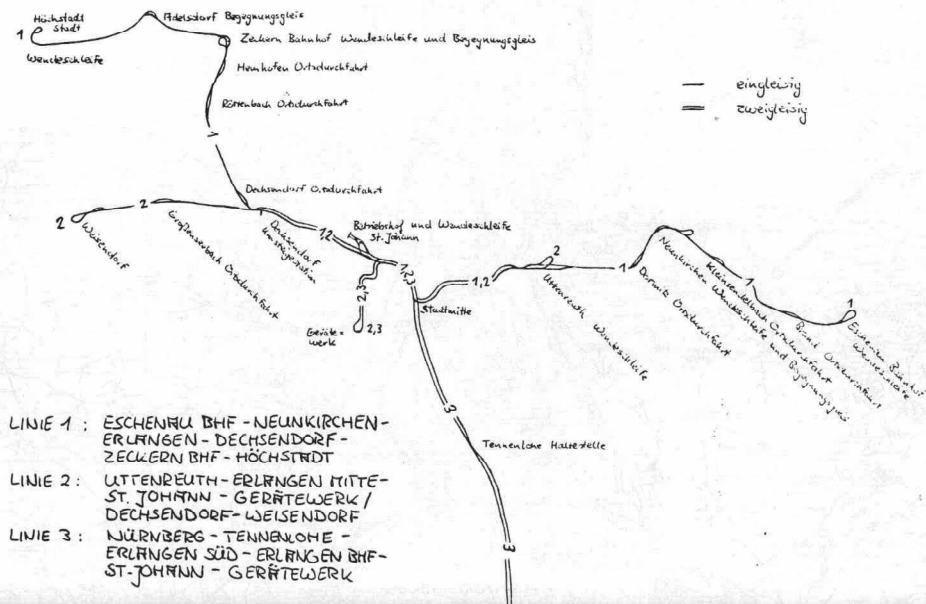 Höchstadt
Stadt
1
Wendeschleife
Adelsdorf Begegnungsgleis
Zeckern Bahnhof Wendeschleife und Begegnungsgleis
Hemhofen Ortsdurchfahrt
Röttenbach Ortsdurchfahrt
— eingleisig
═ zweigleisig
1
Dechsendorf Ortsdurchfahrt
2
2
Weisendorf
Großenseebach Ortsdurchfahrt
Dechsendorf
1,2
Betriebshof und Wendeschleife
St. Johann
2,3
Geräte-
werk
2,3
1,2,3
Stadtmitte
1,2
2
Uttenreuth Wendeschleife
1
Dormitz Ortsdurchfahrt
Neunkirchen Wendeschleife und Begegnungsgleis
Kleinsendelbach Ortsdurchfahrt
1
Brand Ortsdurchfahrt
1
Eschenau Bahnhof
Wendeschleife
3
Tennenlohe Haltestelle
3
LINIE 1: ESCHENAU BHF - NEUNKIRCHEN -
ERLANGEN - DECHSENDORF -
ZECKERN BHF - HÖCHSTADT
LINIE 2: UTTENREUTH - ERLANGEN MITTE -
ST. JOHANN - GERÄTEWERK /
DECHSENDORF - WEISENDORF
LINIE 3: NÜRNBERG - TENNENLOHE -
ERLANGEN SÜD - ERLANGEN BHF -
ST. JOHANN - GERÄTEWERK